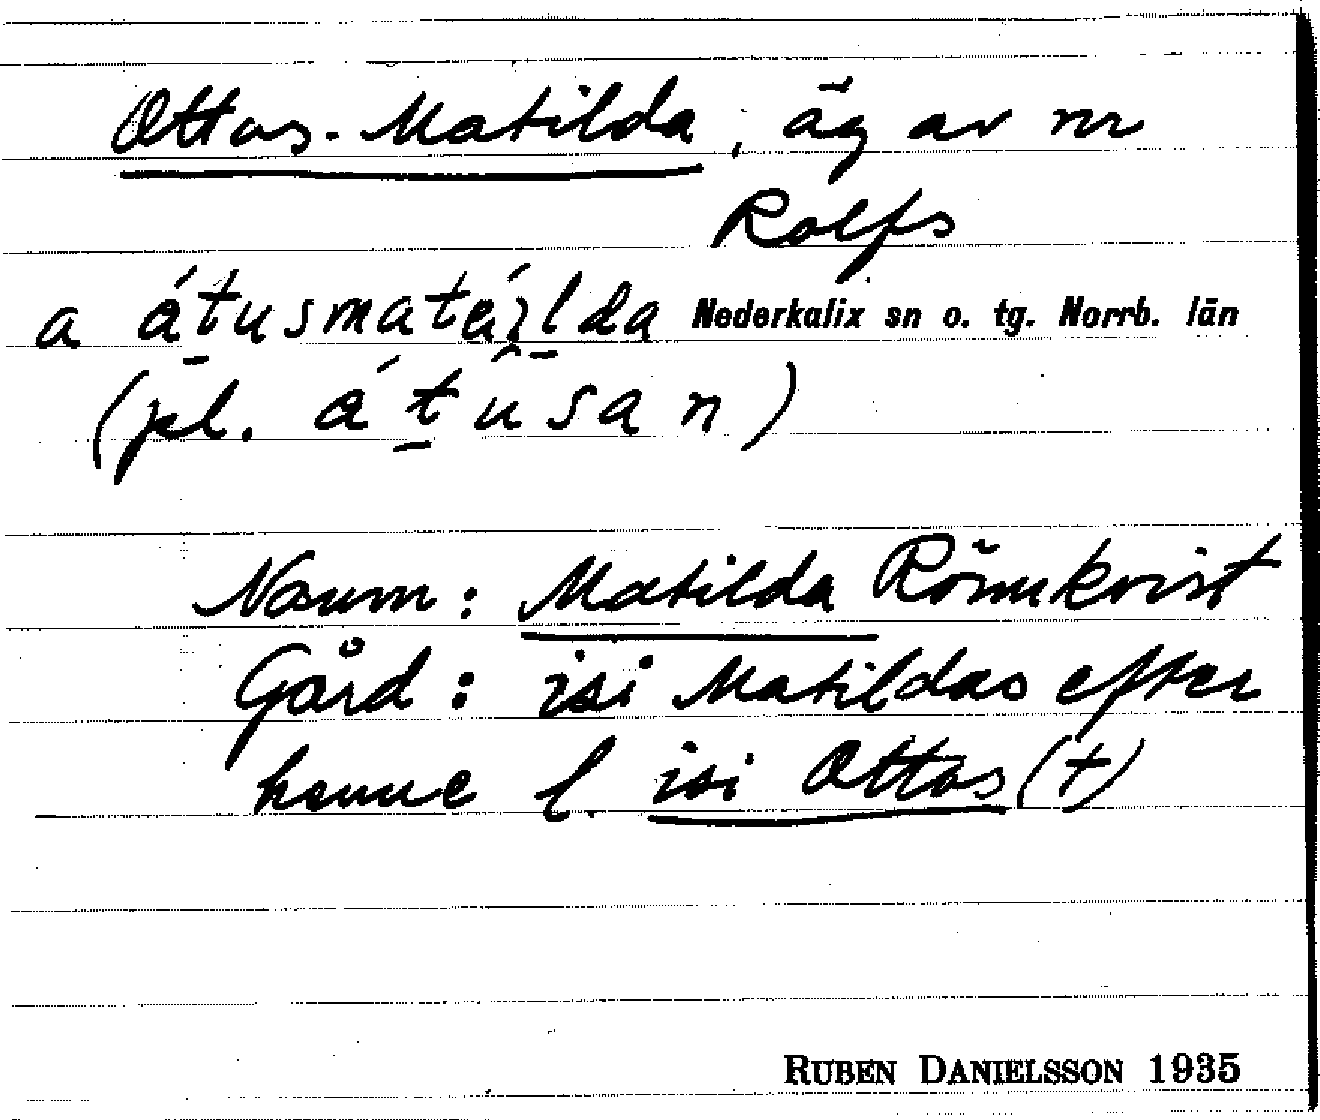 Ottos-Matilda, äg av nr
Rolfs
a átusmatéılda Nederkalix sn o. tg. Norrb. län
(pl. átusan)
Namn: Matilda Rönnkvist
Gård: isi Matildas efter
henne l. isi Ottos (†)
RUBEN DANIELSSON 1935